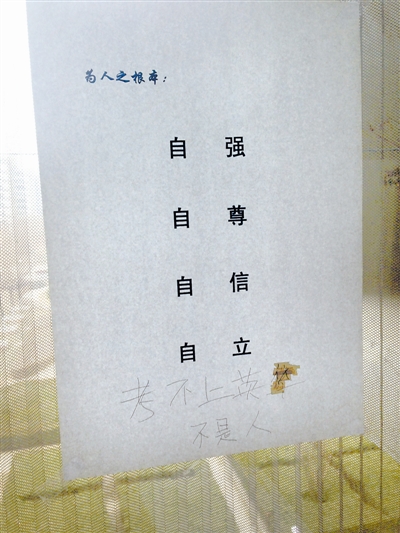 为人之根本:
自 强
自 尊
自 信
自 立
考不上英
不是人